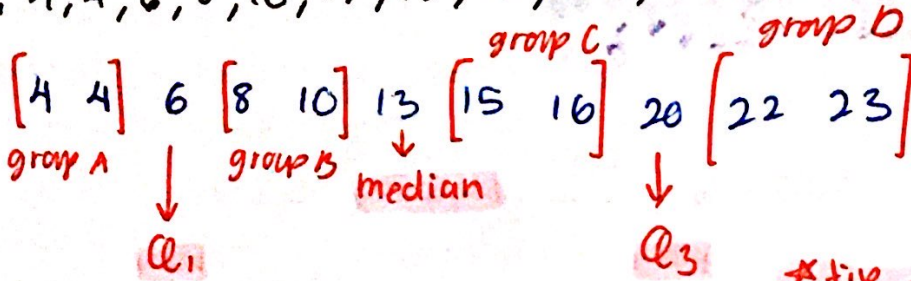 group C group D
[4 4] 6 [8 10] 13 [15 16] 20 [22 23]
group A group B
median
Q1 Q3